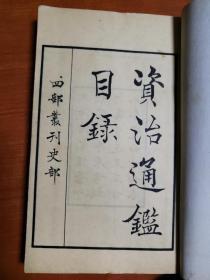 資治通鑑
目錄
四部叢刊史部